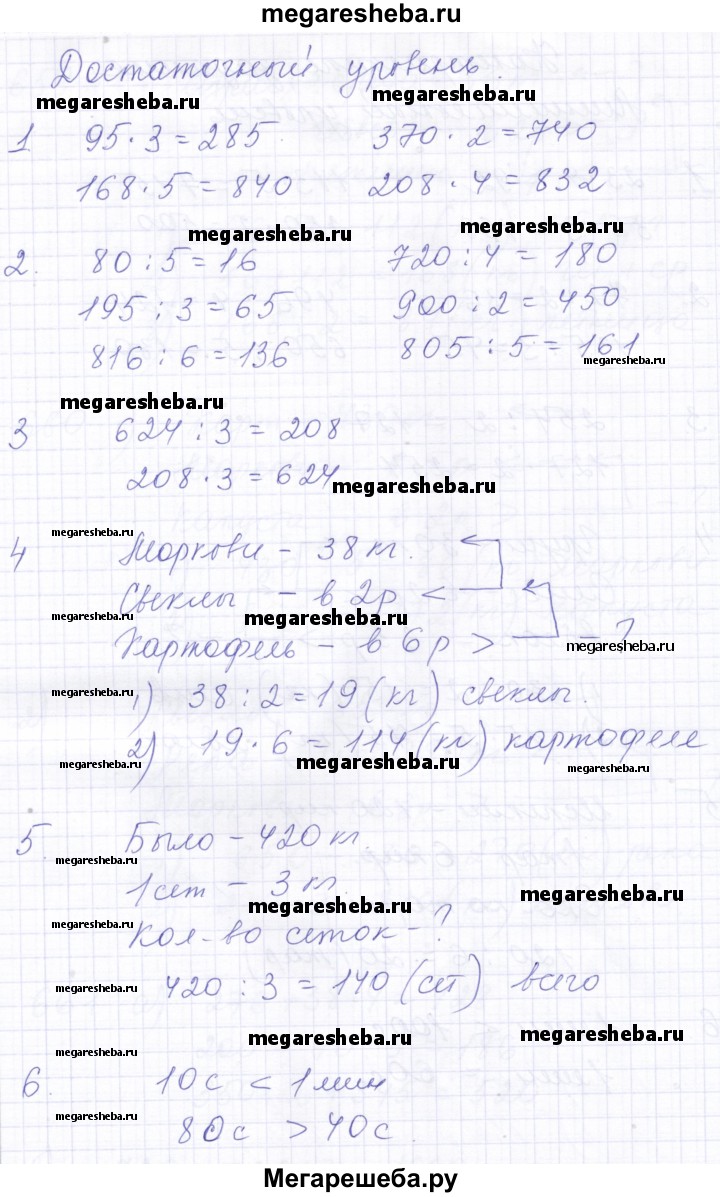 megaresheba.ru
Достаточный уровень.
megaresheba.ru megaresheba.ru
1 95·3=285. 370·2=740
168·5=840 208·4=832
megaresheba.ru megaresheba.ru
2. 80:5=16 720:4=180
195:3=65 900:2=450
816:6=136 805:5=161
megaresheba.ru
megaresheba.ru
3 624:3=208
208·3=624
megaresheba.ru
megaresheba.ru
4 Моркови - 38 кг.
Свеклы - в 2р <
megaresheba.ru megaresheba.ru
Картофель - в 6р > - ?
megaresheba.ru
megaresheba.ru
1) 38:2=19 (кг) свеклы.
2) 19·6=114 (кг) картофеле
megaresheba.ru megaresheba.ru megaresheba.ru
5. Было - 420 кг.
megaresheba.ru
1 сет - 3 кг.
megaresheba.ru megaresheba.ru
megaresheba.ru
Кол-во сеток - ?
420:3=140 (сет) всего
megaresheba.ru
megaresheba.ru megaresheba.ru
megaresheba.ru
6. 10с < 1 мин
megaresheba.ru
80с > 40с
megaresheba.ru megaresheba.ru
Мегарешеба.ру